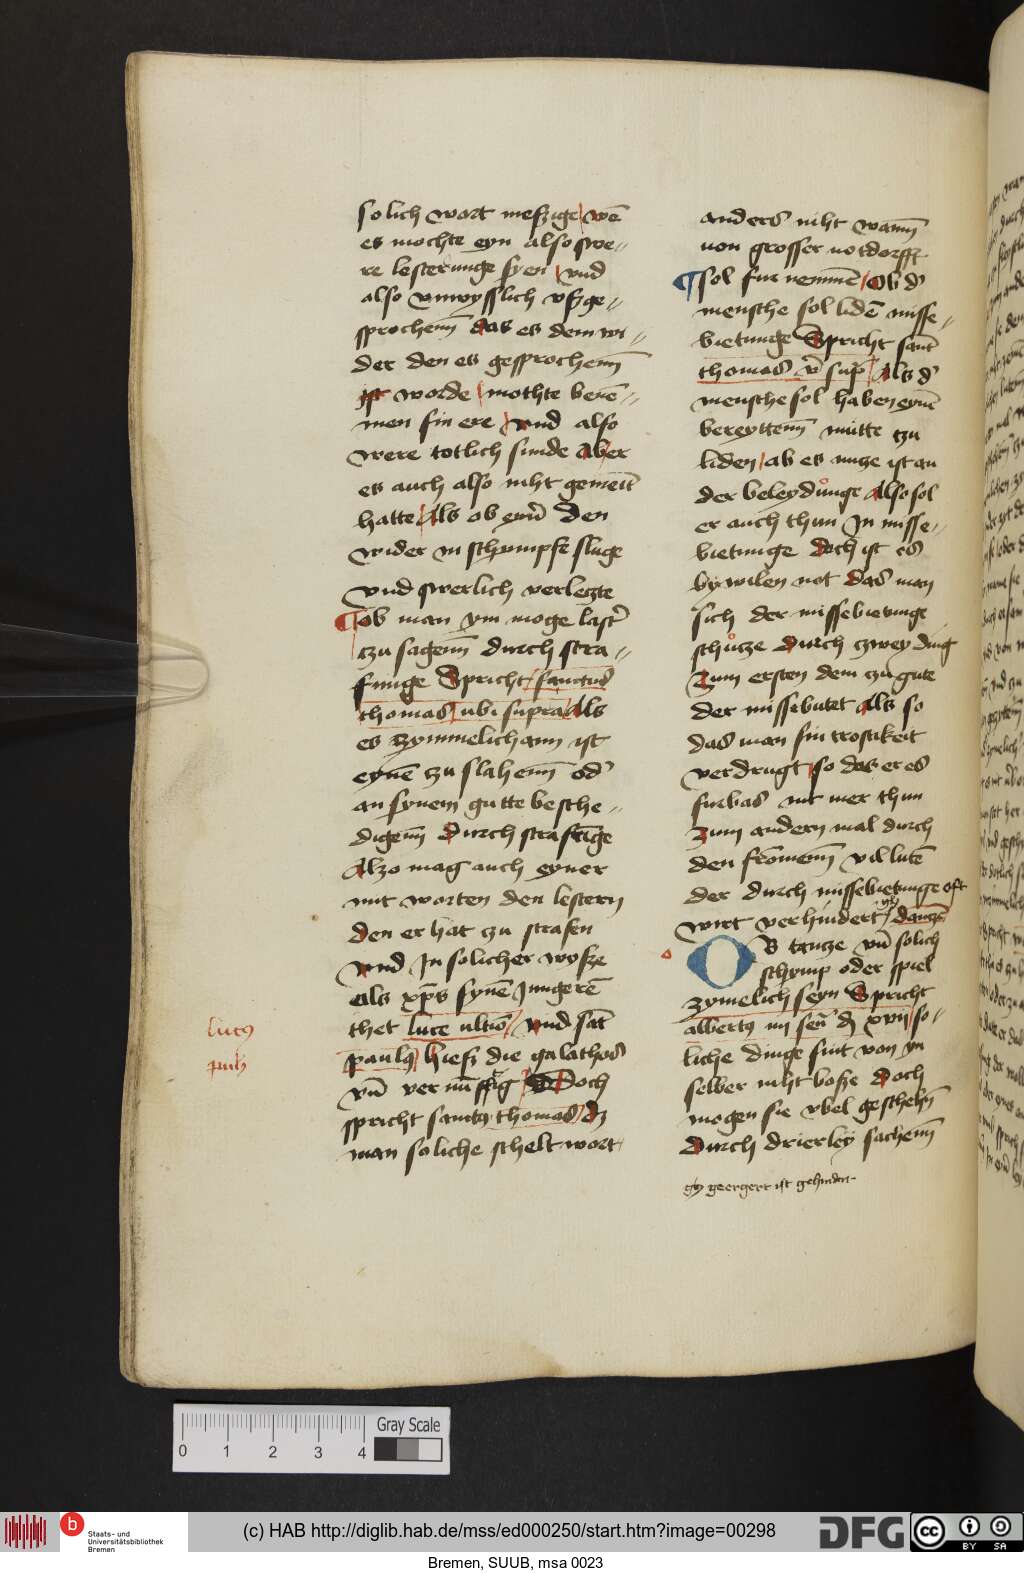 solich wort meszige wē
es mochte eyn also swe-
re lesterunge syen vnd
also vnwysslich vszge-
sprochenn das es dem wi-
der den es gesprochenn
ist worde mochte benē-
men sin ere vnd also
were totlich sunde Aber
es auch also niht gemeīt
hatte Als ob eynr̄ den
wider in schympfe sluge
vnd swerlich verletzte
¶ob man ym moge last̄
tzu sagenn durch stra-
funge Spricht sanctus
thomas ubi supra Als
es zymmelichann ist
eynē tzu slahenn od̄
an synem gutte besche-
digenn Durch straffūge
Alzo mag auch eyner
mit worten den lestern
den er hat zu strafen
vnd Jn solicher wysze
als xp̄s synē Jungerē
thet luce ultīo vnd sāt
paulꝯ hiesz die galathas
vn̄ vernūfftig Doch
spricht sanctꝯ thomas dz
man soliche scheltwort
lucꝯ
anders niht wann
von grosser notdorfft
¶sol fur nemmē Ob d̄
mensche sol lidē misse-
bietunge Spricht sant̄
thomas vt̄ sup̄ Als d̄
mensche sol haben eynē
bereyttenn mutte tzu
liden ab es nuze ist an
der beleydůnge Also sol
er auch thun Jn misse-
bietunge Doch ist es
bywilen not das man
sich der missebietunge
schůtze durch tzwey ding
Zum ersten dem zu gute
der missebutet Als so
das man sin trostikeit
verdrugt so das er es
furbas nit mer thun
Zum andern mal durch
den frōmenn vil lutē
der durch missebietunge oft
wirt verhindert dantze
OB tantze vn̄ solich
schymp oder spiel
zymelich seyn Spricht
albertꝯ in sen̄ dz xvij so-
liche dinge sint von yn
selber niht bosze Doch
mogen sie vbel geschehn̄
Durch drierley sachenn
geergert ist gehindert
(c) HAB http://diglib.hab.de/mss/ed000250/start.htm?image=00298
Gray Scale
0 1 2 3 4
b
Staats- und
Universitätsbibliothek
Bremen
DFG
cc BY SA
Bremen, SUUB, msa 0023